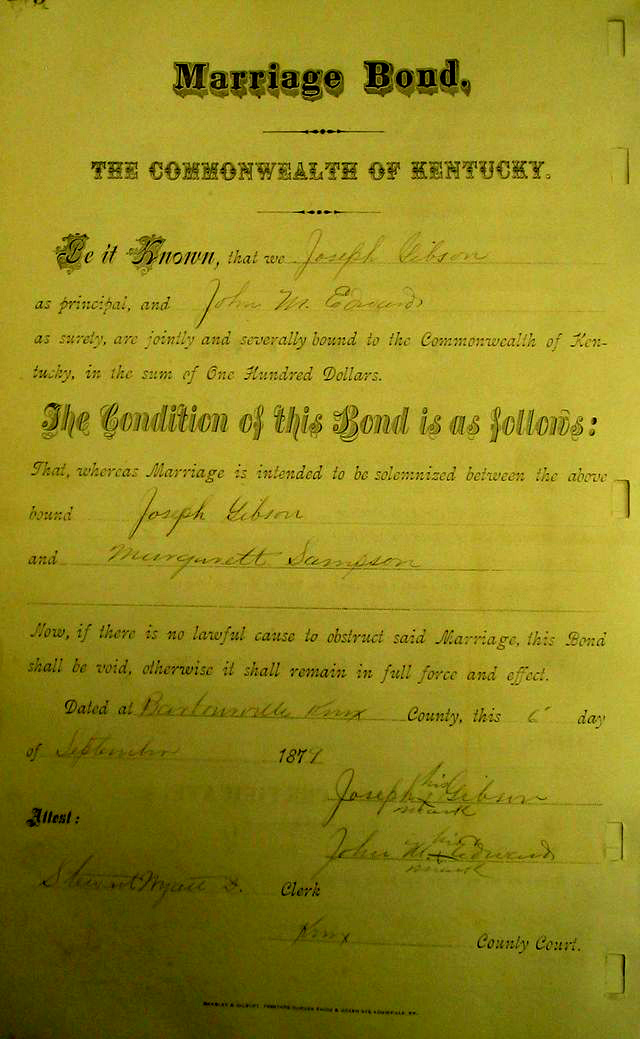 Marriage Bond,
THE COMMONWEALTH OF KENTUCKY.
Be it Known, that we Joseph Gibson
as principal, and John M. Edwards
as surety, are jointly and severally bound to the Commonwealth of Ken-
tucky, in the sum of One Hundred Dollars.
The Condition of this Bond is as follows:
That, whereas Marriage is intended to be solemnized between the above
bound Joseph Gibson
and Margarett Sampson
Now, if there is no lawful cause to obstruct said Marriage, this Bond
shall be void, otherwise it shall remain in full force and effect.
Dated at Barbourville Knox County, this 6 day
of September 1879
his
Joseph x Gibson
mark
Attest:
his
John M. x Edwards
mark
Wyatt Clerk
Knox County Court.